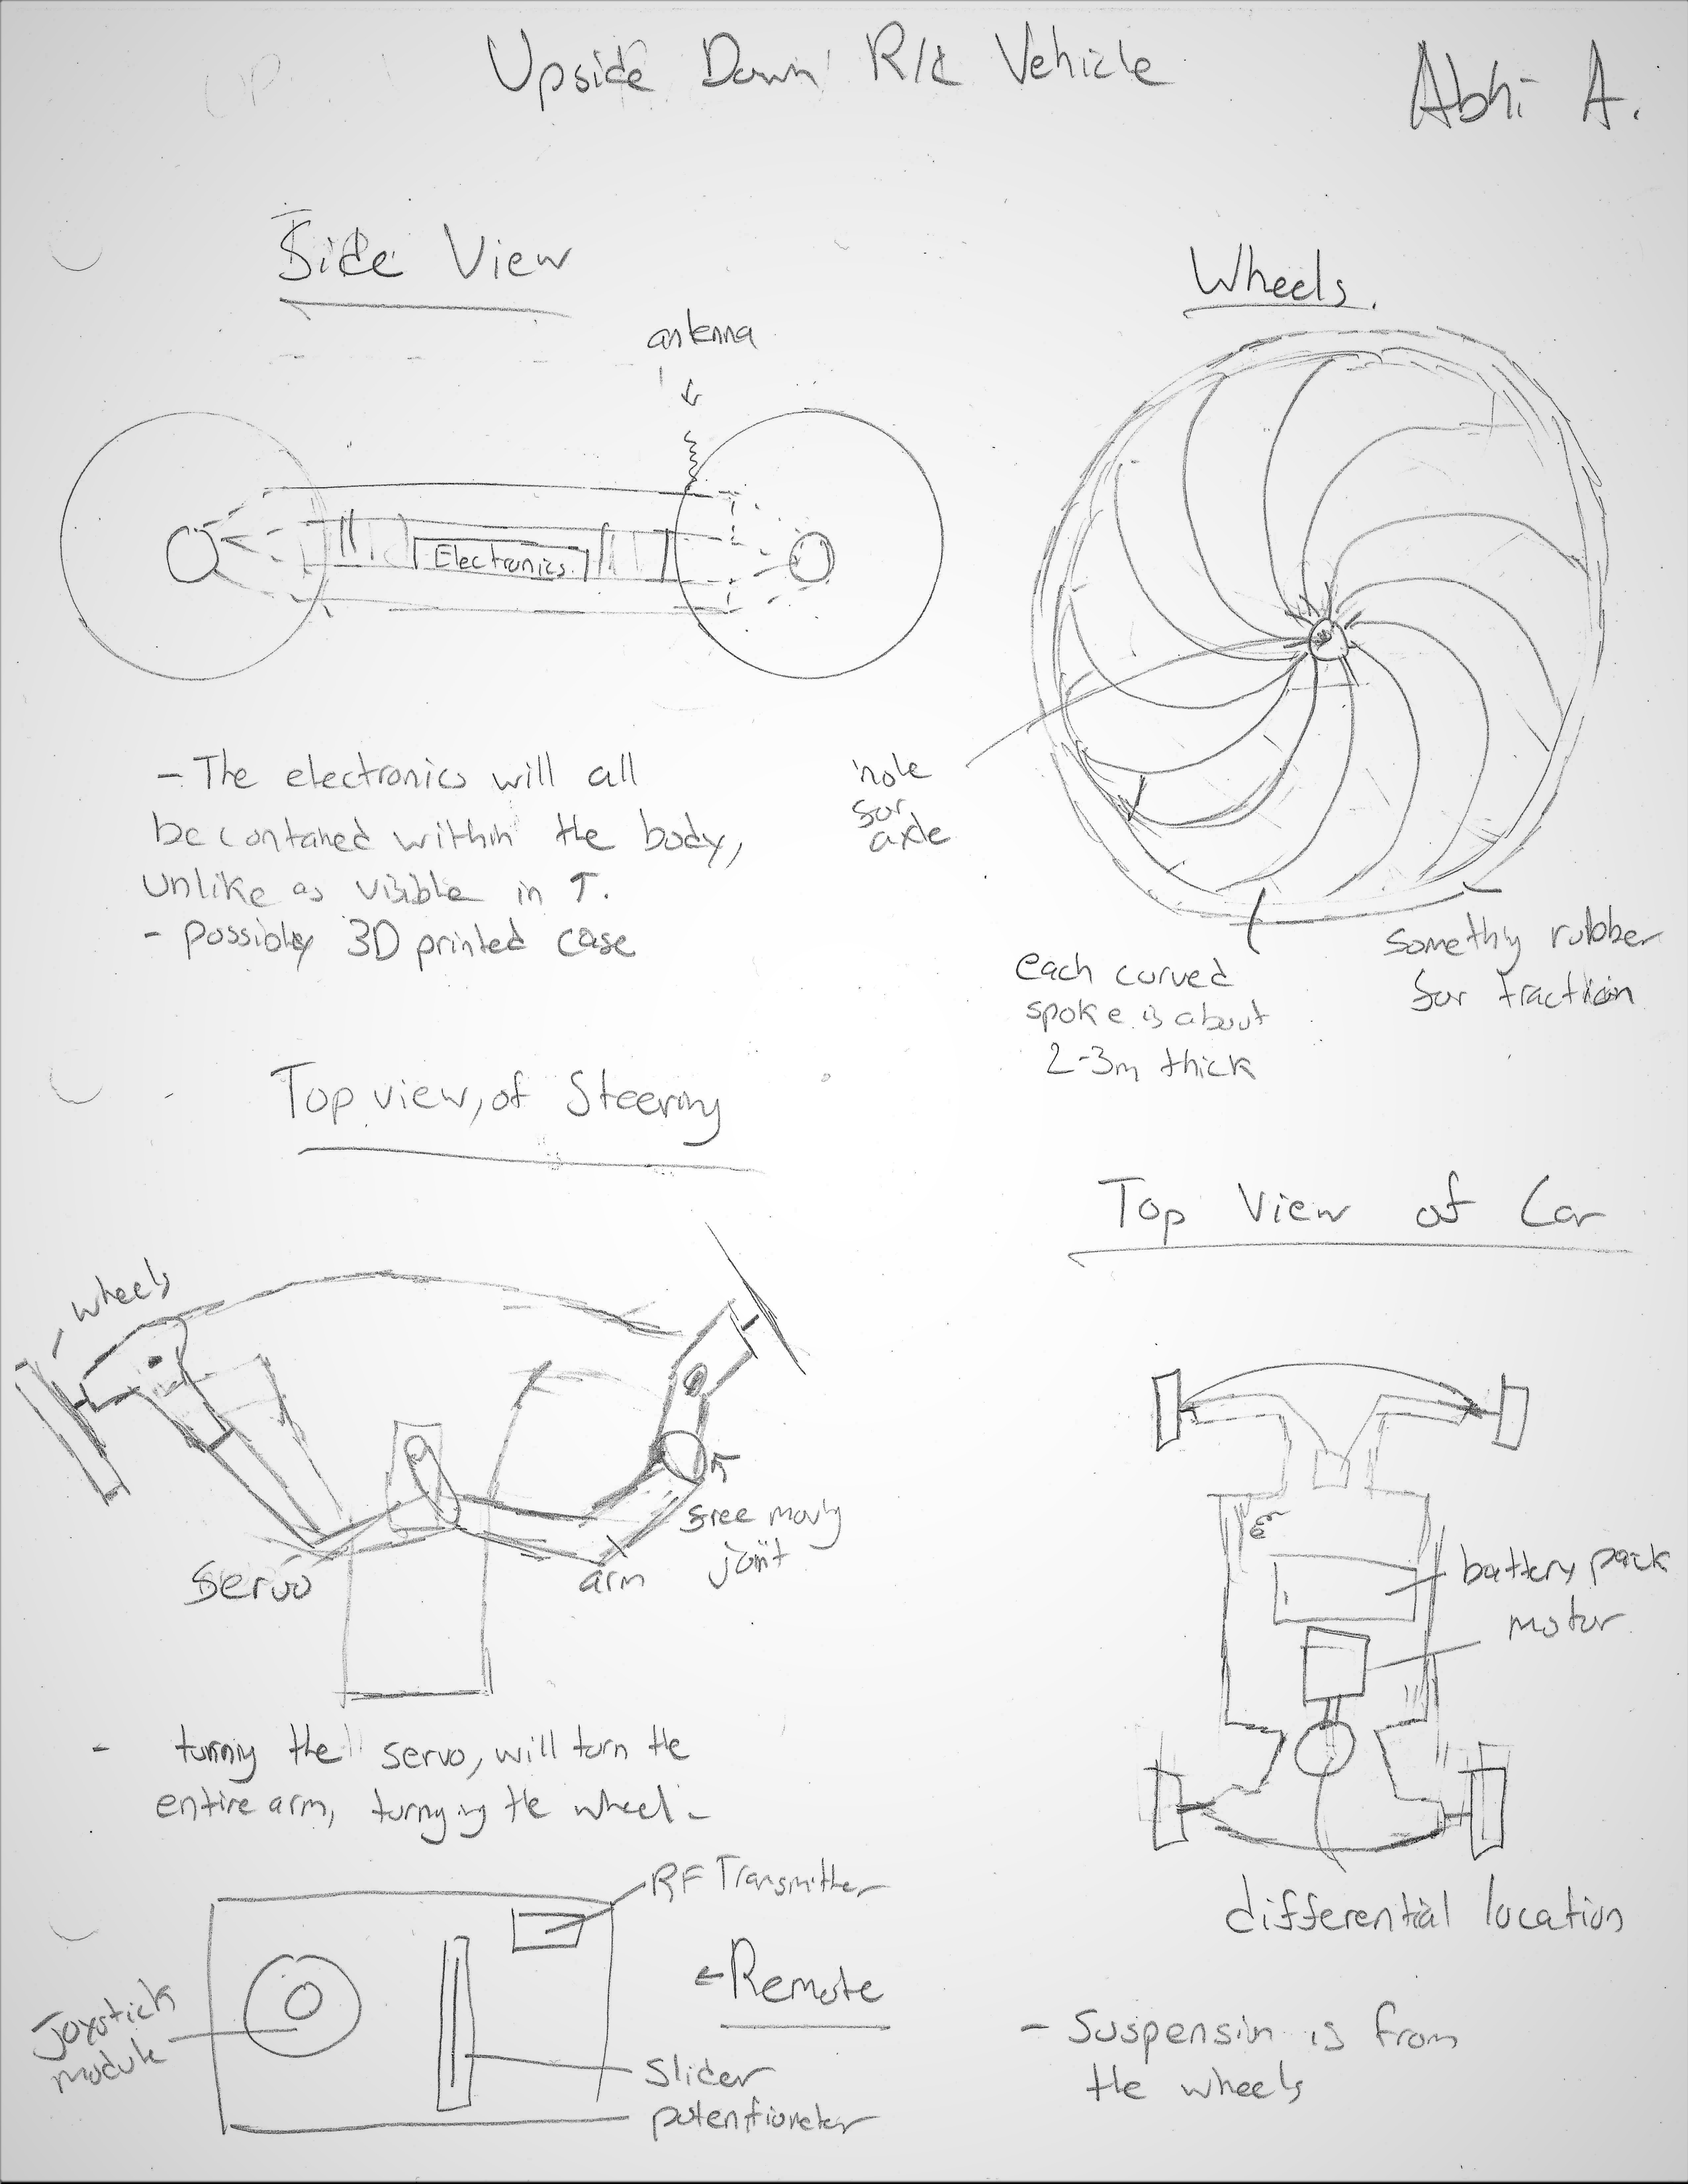 Upside Down R/C Vehicle
Abhi A.
Side View
antenna
Electronics
- The electronics will all
be contained within the body,
unlike as visible in T.
- possibly 3D printed case
Wheels.
hole
for
axle
each curved
spoke is about
2-3m thick
something rubber
for traction
Top view, of Steering
wheels
servo
arm
free moving
joint
- turning the servo, will turn the
entire arm, turnging the wheel.
Top View of Car
battery pack
motor
differential location
- Suspension is from
the wheels
RF Transmitter
← Remote
Joystick
module
Slider
potentiometer